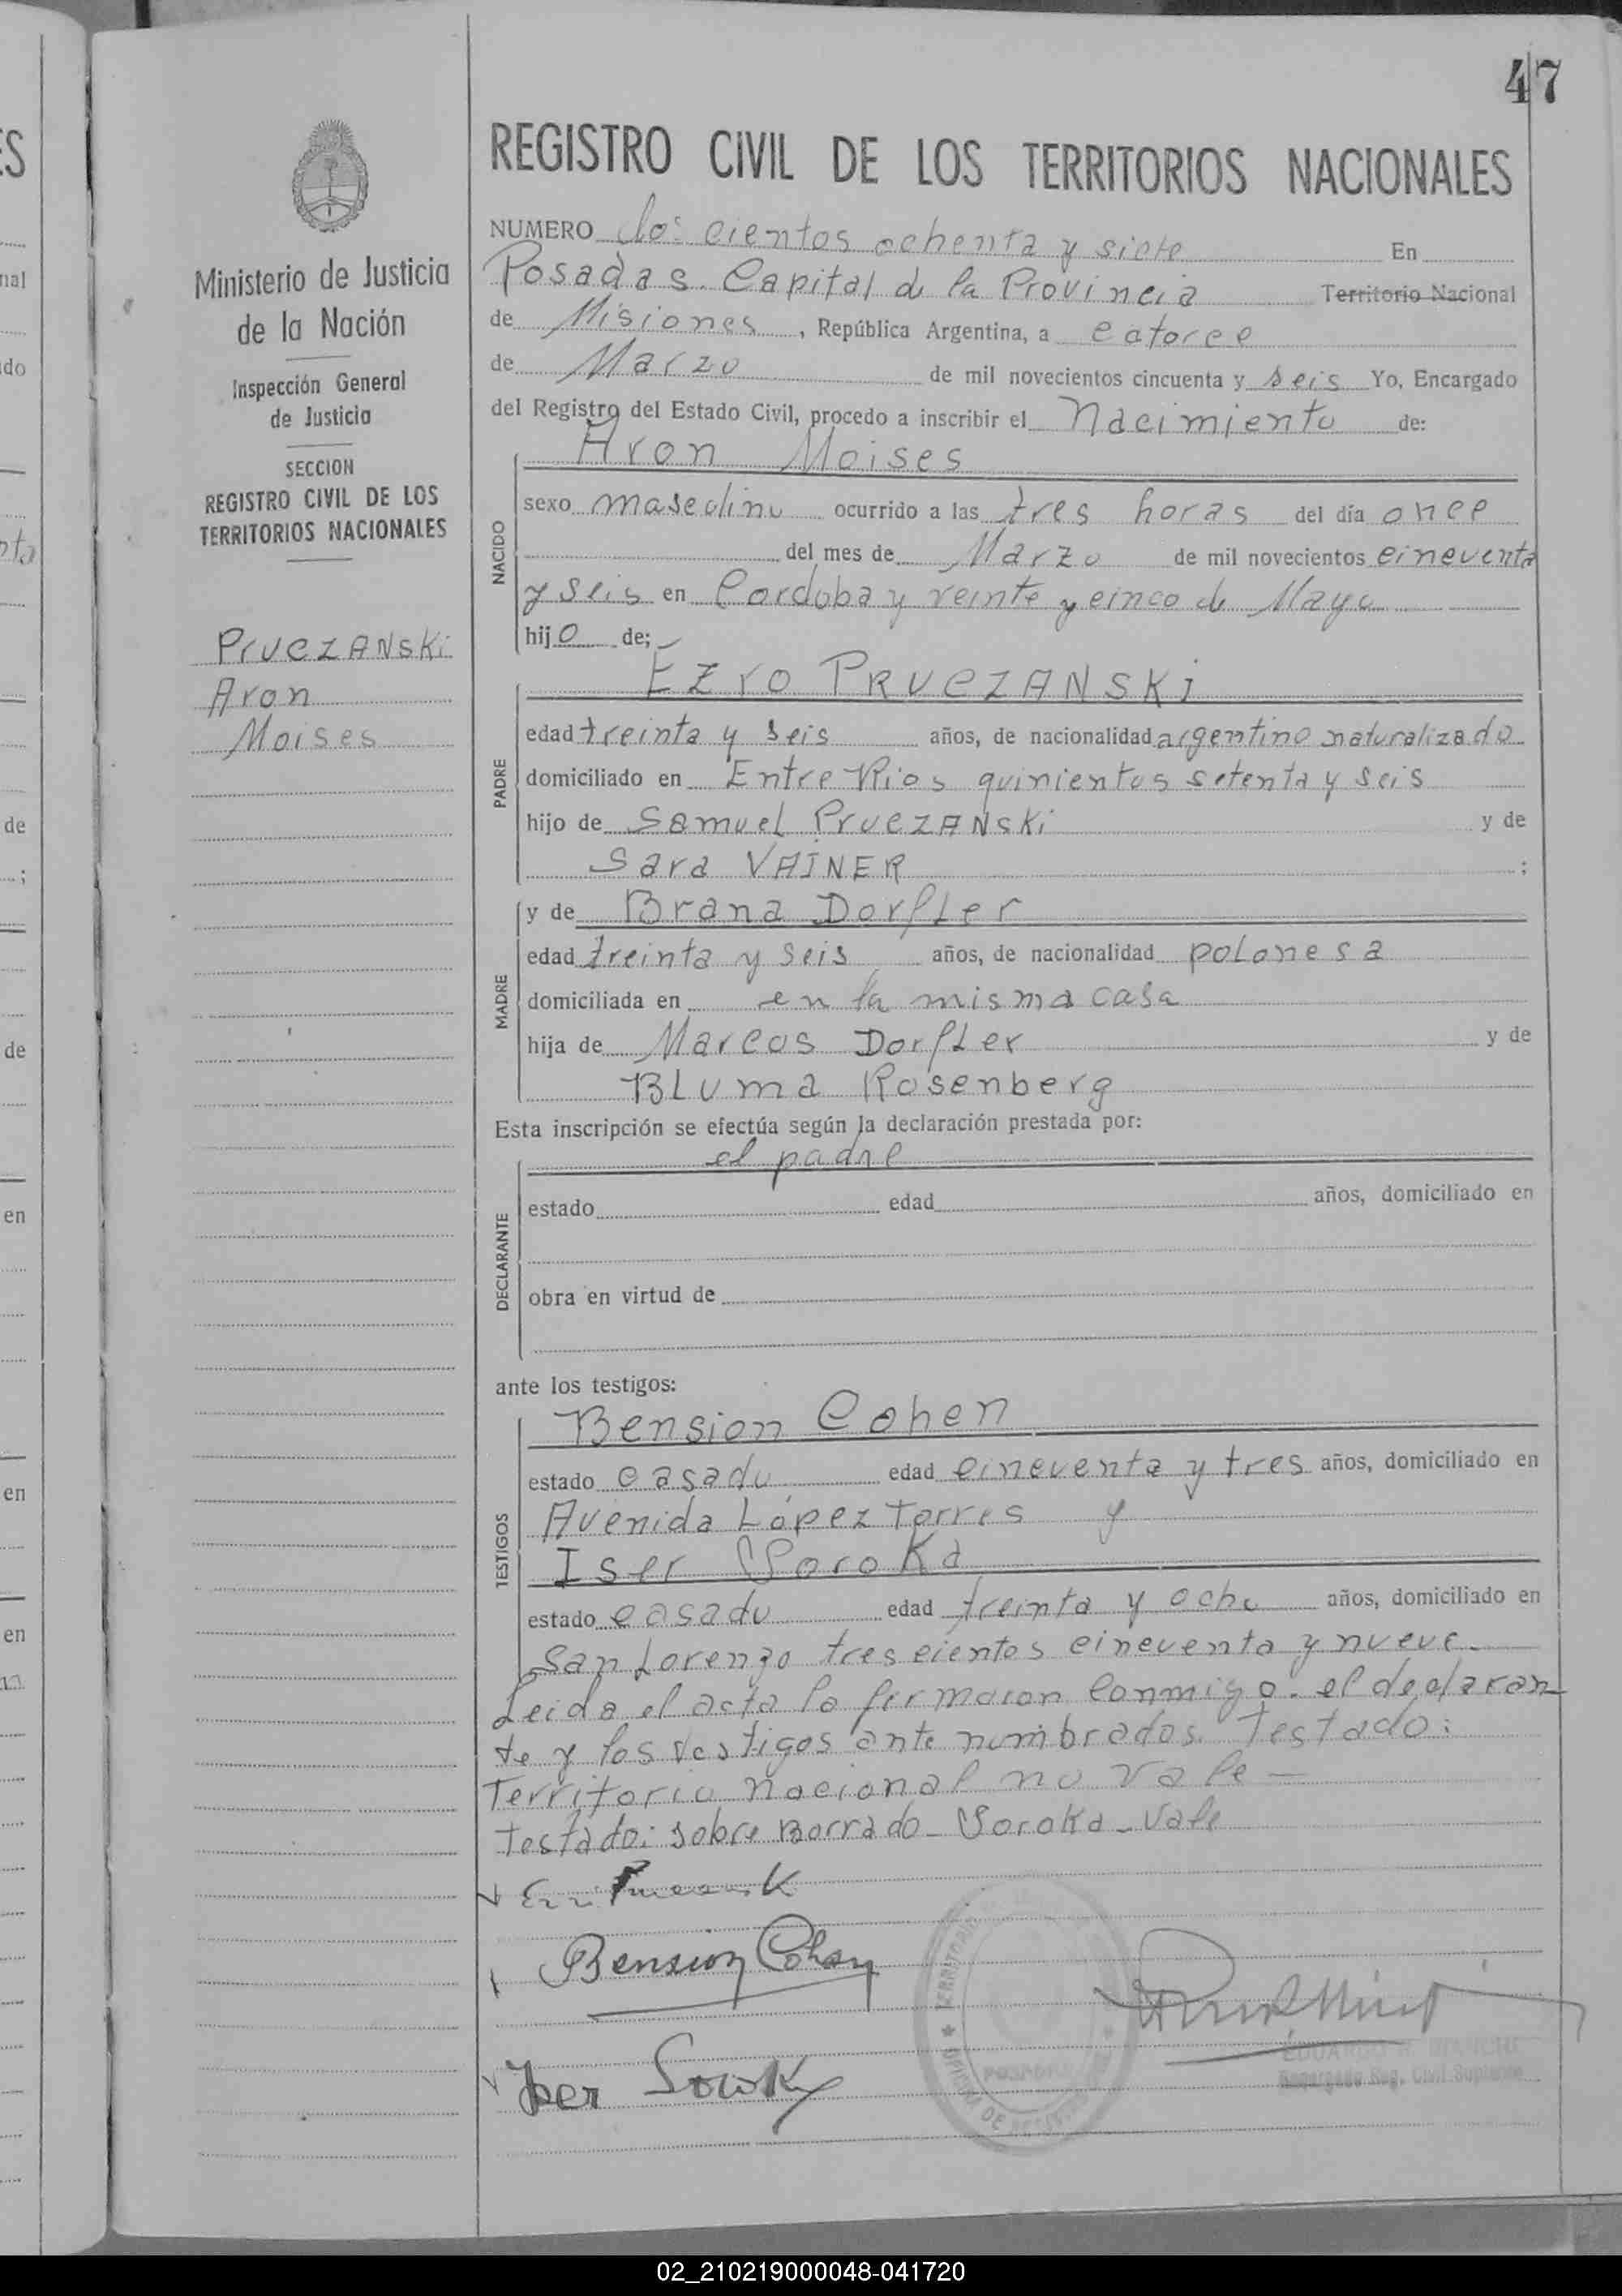 47
Ministerio de Justicia
de la Nación
Inspección General
de Justicia
SECCION
REGISTRO CIVIL DE LOS
TERRITORIOS NACIONALES
PrucZANSKi
Aron
Moises
REGISTRO CIVIL DE LOS TERRITORIOS NACIONALES
NUMERO dos cientos ochenta y siete En
Posadas. Capital de la Provincia Territorio Nacional
de Misiones, República Argentina, a catorce
de Marzo de mil novecientos cincuenta y seis Yo, Encargado
del Registro del Estado Civil, procedo a inscribir el Nacimiento de:
Aron Moises
NACIDO
sexo masculino ocurrido a las tres horas del día once
del mes de Marzo de mil novecientos cincuenta
y seis en Cordoba y veinte y cinco de Mayo
hijo de;
Ezro PRUCZANSKi
PADRE
edad treinta y seis años, de nacionalidad argentino naturalizado
domiciliado en Entre Rios quinientos setenta y seis
hijo de Samuel PrucZANSKi y de
Sara VAINER ;
y de Brana Dorfler
MADRE
edad treinta y seis años, de nacionalidad polonesa
domiciliada en en la misma casa
hija de Marcos Dorfler y de
Bluma Rosenberg
Esta inscripción se efectúa según la declaración prestada por:
el padre
DECLARANTE
estado edad años, domiciliado en
obra en virtud de
ante los testigos:
Bension Cohen
TESTIGOS
estado casado edad cincuenta y tres años, domiciliado en
Avenida López Torres y
Iser Soroka
estado casado edad treinta y ocho años, domiciliado en
San Lorenzo trescientos cincuenta y nueve.
Leida el acta la firmaron conmigo. el declaran
te y los testigos ante nombrados. Testado:
Territorio nacional no vale —
Testado: sobre Borrado - Soroka - Vale
Bension Cohen
Iser
POSADAS
Encargado Reg. Civil Suplente
02_210219000048-041720